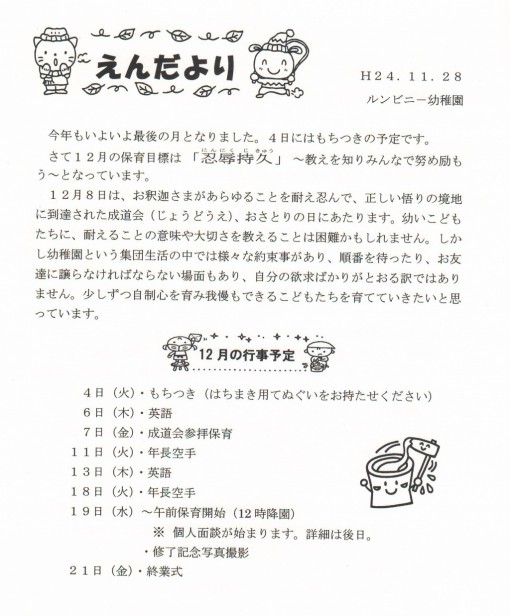 えんだより
H24.11.28
ルンビニー幼稚園
今年もいよいよ最後の月となりました。4日にはもちつきの予定です。
さて12月の保育目標は「忍辱持久」～教えを知りみんなで努め励も
う～となっています。
12月8日は、お釈迦さまがあらゆることを耐え忍んで、正しい悟りの境地
に到達された成道会（じょうどうえ）、おさとりの日にあたります。幼いこども
たちに、耐えることの意味や大切さを教えることは困難かもしれません。しか
し幼稚園という集団生活の中では様々な約束事があり、順番を待ったり、お友
達に譲らなければならない場面もあり、自分の欲求ばかりがとおる訳ではあり
ません。少しずつ自制心を育み我慢もできるこどもたちを育てていきたいと思
っています。
12月の行事予定
4日（火）・もちつき（はちまき用てぬぐいをお持たせください）
6日（木）・英語
7日（金）・成道会参拝保育
11日（火）・年長空手
13日（木）・英語
18日（火）・年長空手
19日（水）～午前保育開始（12時降園）
※ 個人面談が始まります。詳細は後日。
・修了記念写真撮影
21日（金）・終業式